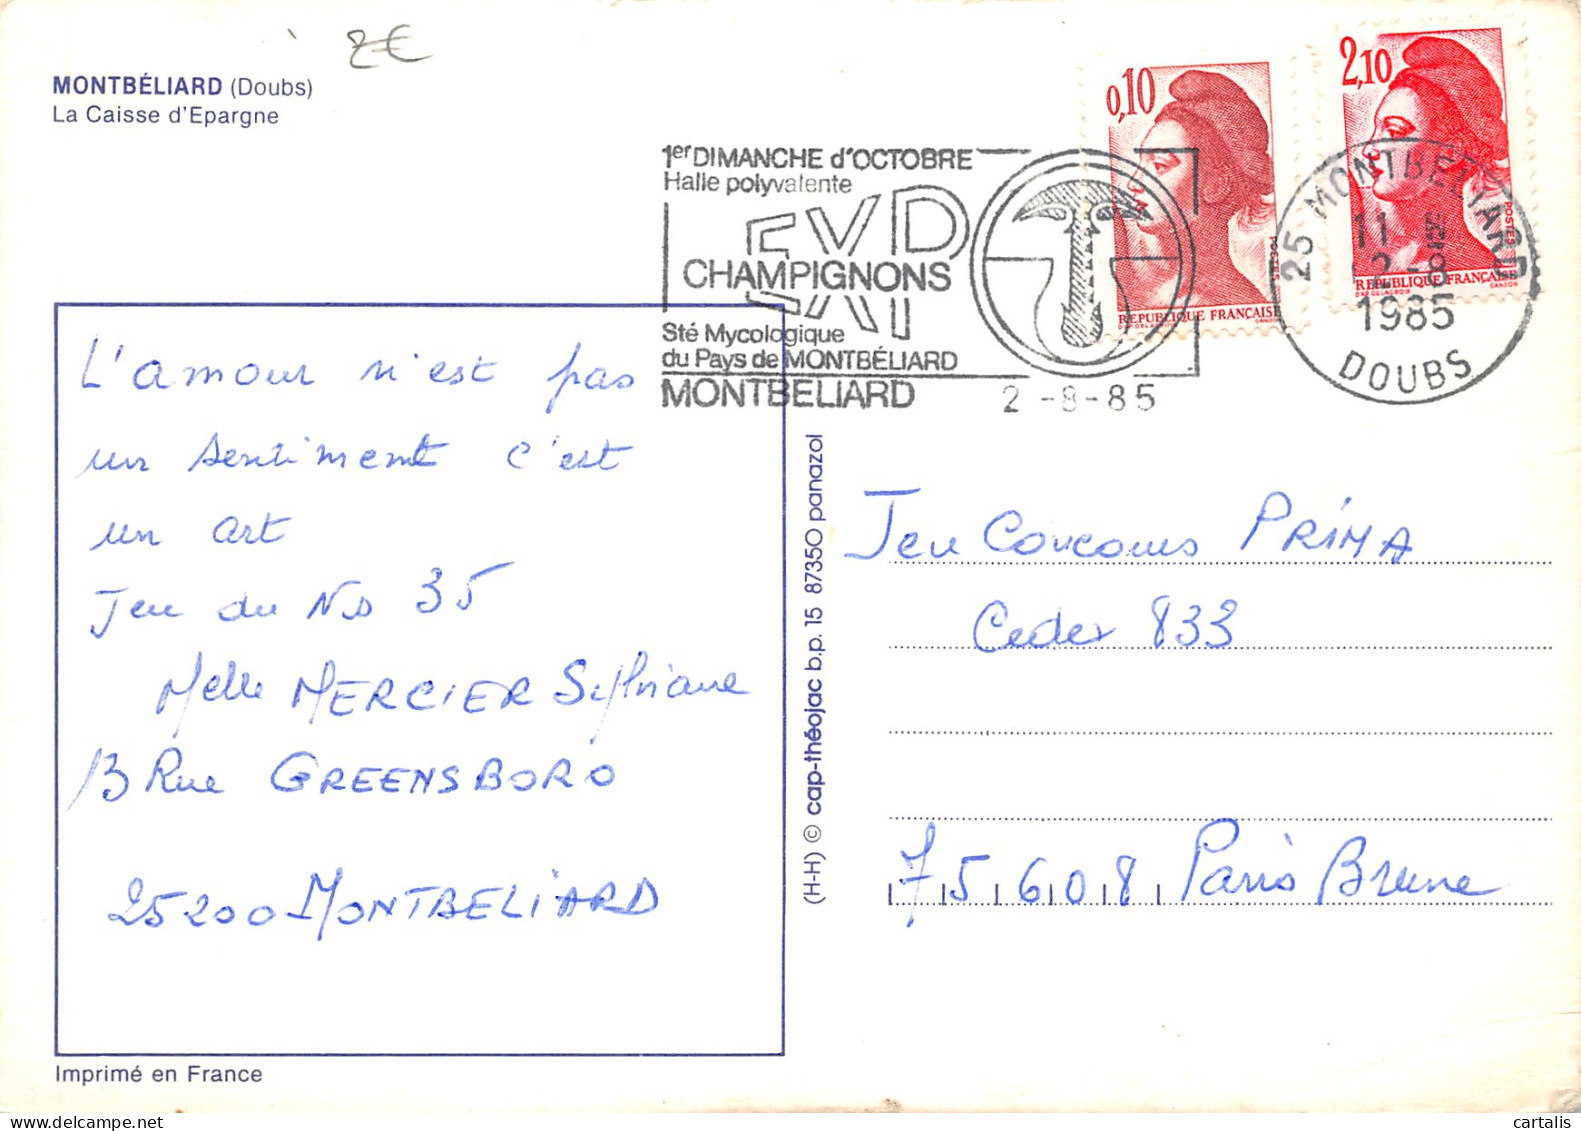 2€
MONTBÉLIARD (Doubs)
La Caisse d'Epargne
1er DIMANCHE d'OCTOBRE
Halle polyvalente
EXPO
CHAMPIGNONS
Sté Mycologique
du Pays de MONTBÉLIARD
MONTBELIARD
2 -8-85
0,10
POSTES
REPUBLIQUE FRANÇAISE
D'AP. DELACROIX GANDON
2,10
POSTES
REPUBLIQUE FRANÇAISE
D'AP. DELACROIX GANDON
25 MONTBELIARD
11 H
2-8
1985
DOUBS
L'amour n'est pas
un sentiment c'est
un art
Jeu du No 35
Melle MERCIER Sylviane
13 Rue GREENSBORO
25200 MONTBELIARD
Imprimé en France
(H-H) © cap-théojac b.p. 15 87350 panazol
Jeu Concours PRIMA
Cedex 833
75608 Paris Brune
cartalis